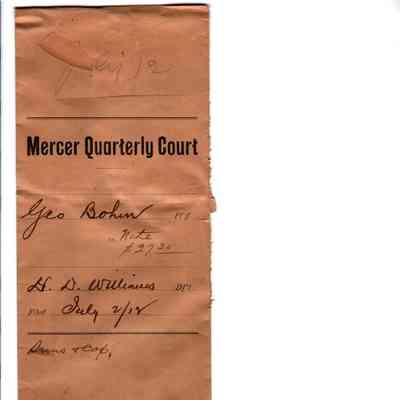 July 12
Mercer Quarterly Court
Geo Bohon PFF
Note
$27 20
H. D. Williams DFT
Filed July 2/12
Sums & Cop,